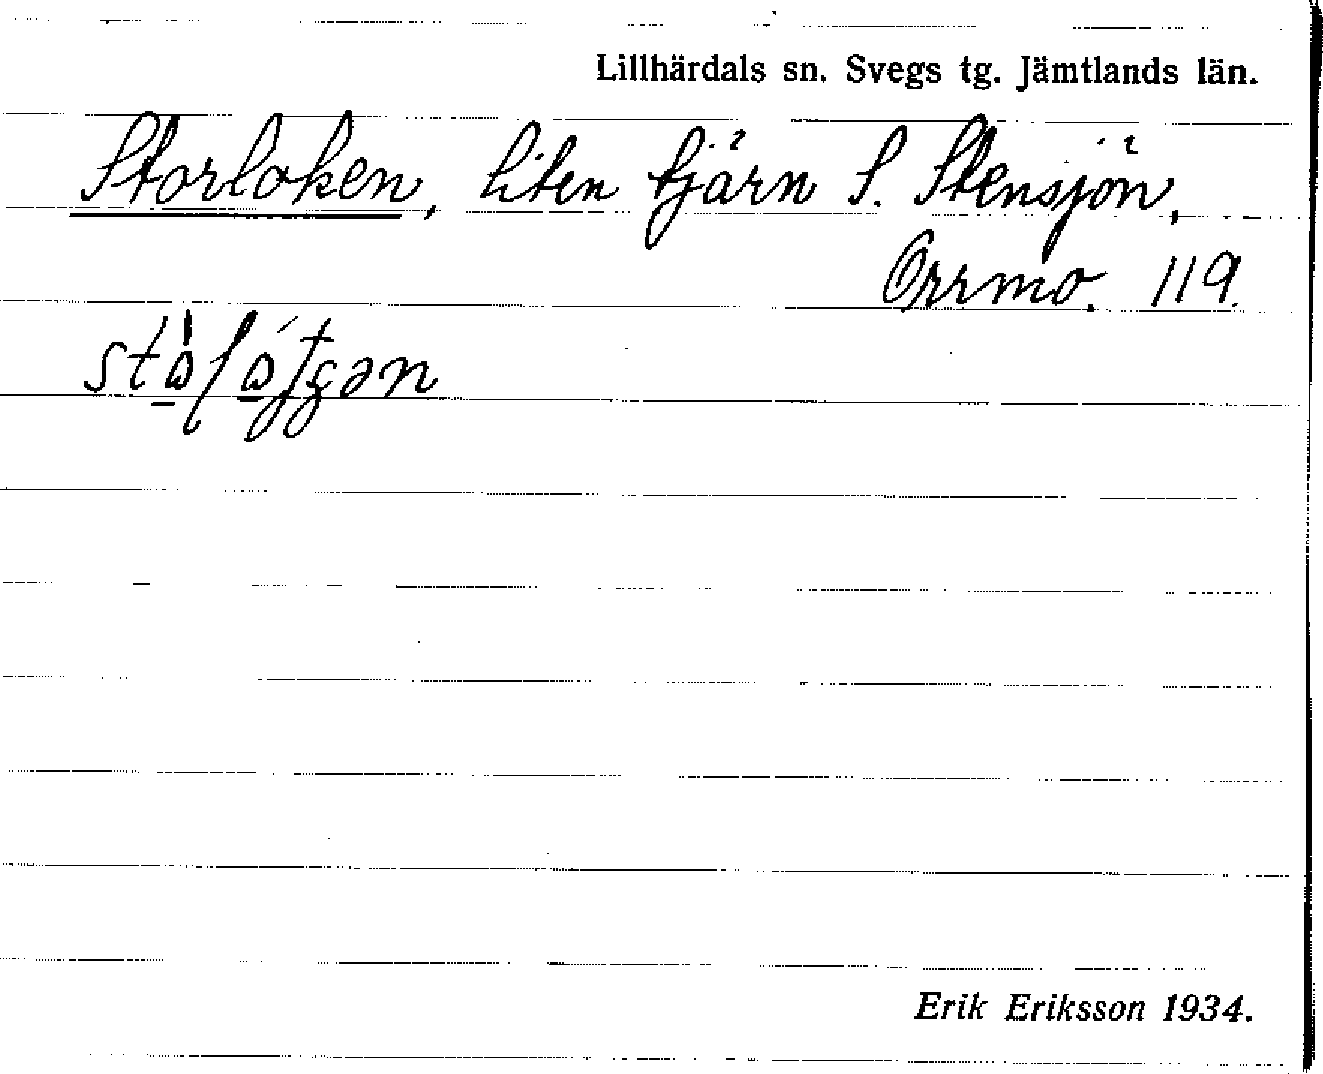 Lillhärdals sn. Svegs tg. Jämtlands län.
Storloken, liten tjärn S. Stensjön,
Orrmo. 119.
Erik Eriksson 1934.